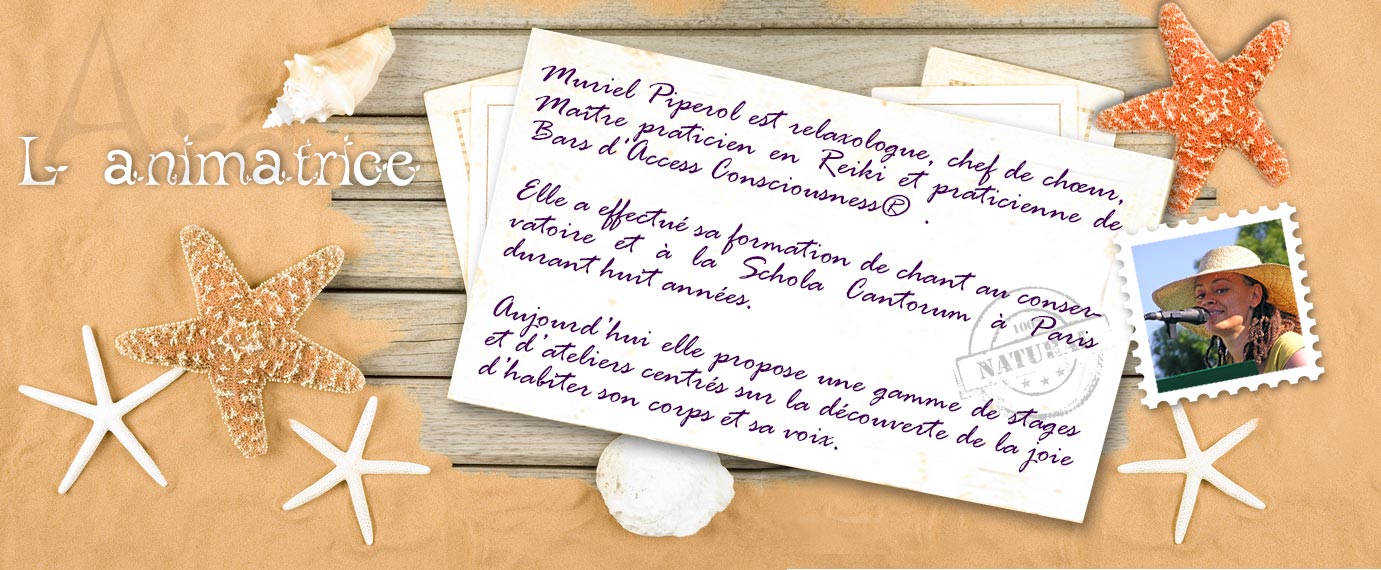 L- animatrice
Muriel Piperol est relaxologue, chef de chœur,
Maître praticien en Reiki et praticienne de
Bars d'Access Consciousness® .
Elle a effectué sa formation de chant au conser-
vatoire et à la Schola Cantorum à Paris
durant huit années.
Aujourd'hui elle propose une gamme de stages
et d'ateliers centrés sur la découverte de la joie
d'habiter son corps et sa voix.
100%
NATURAL